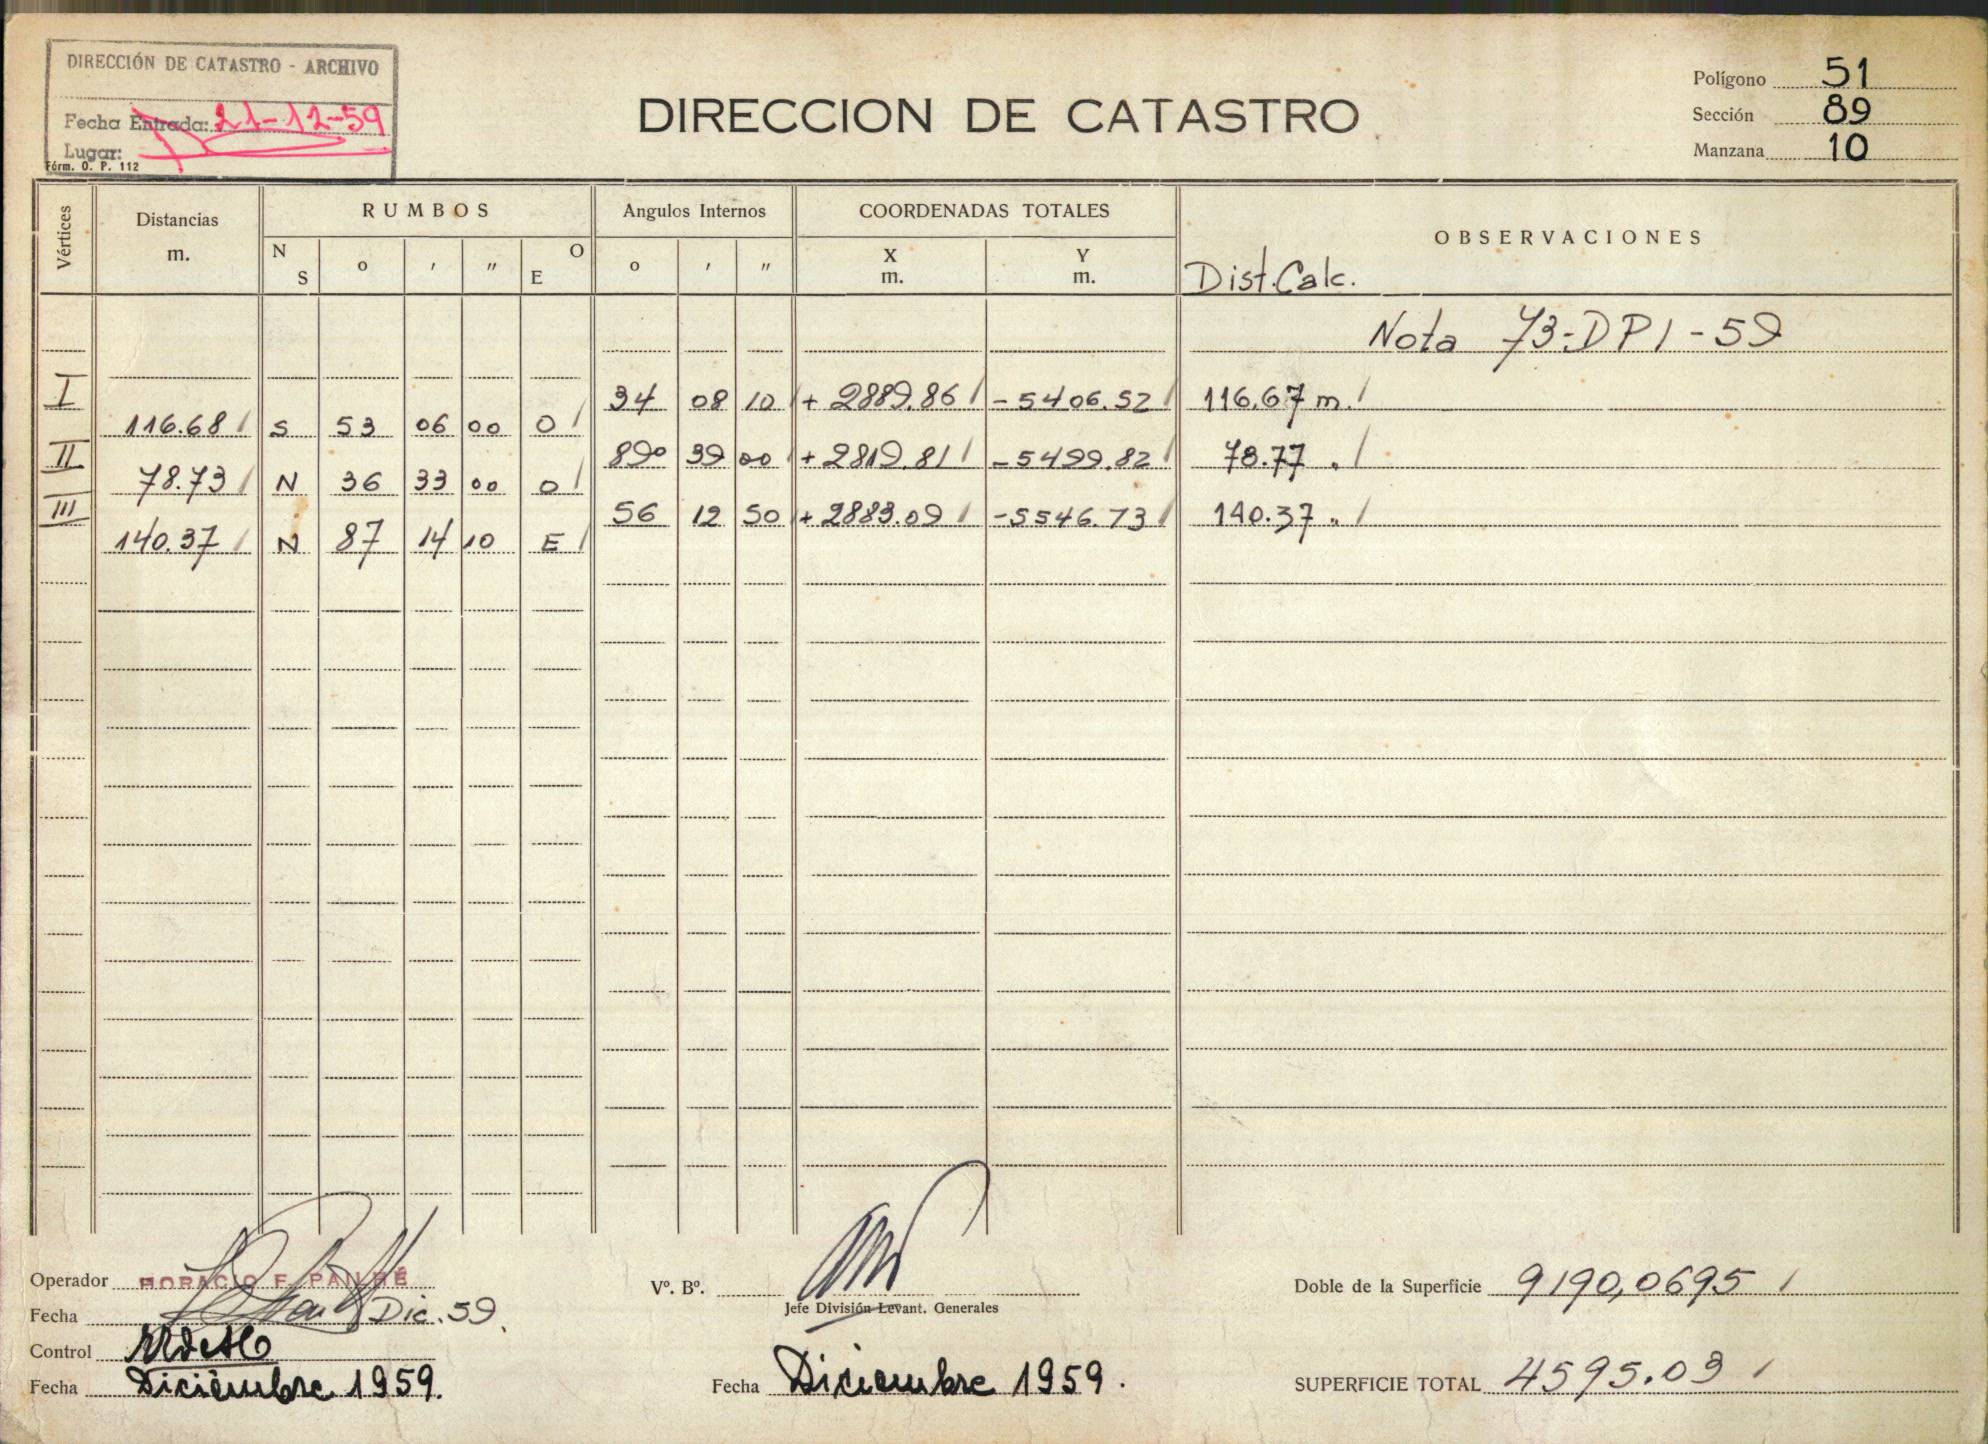 DIRECCIÓN DE CATASTRO - ARCHIVO
Fecha Entrada: 21-12-59
Lugar:
Fórm. O. P. 112
DIRECCION DE CATASTRO
Polígono 51
Sección 89
Manzana 10
Vértices Distancias m. RUMBOS Angulos Internos COORDENADAS TOTALES OBSERVACIONES
N S o ' " O E o ' " X m. Y m. Dist. Calc.
Nota 73-DPI-59
I 34 08 10 + 2889.86 - 5406.52 116.67 m.
116.68 S 53 06 00 O
II 89º 39 00 + 2819.81 - 5499.82 78.77 "
78.73 N 36 33 00 O
III 56 12 50 + 2883.09 - 5546.73 140.37 "
140.37 N 87 14 10 E
Operador HORACIO F.
Fecha Dic. 59.
Control
Fecha Diciembre 1959.
Vº. Bº.
Jefe División Levant. Generales
Fecha Diciembre 1959.
Doble de la Superficie 9190,0695
SUPERFICIE TOTAL 4595.03